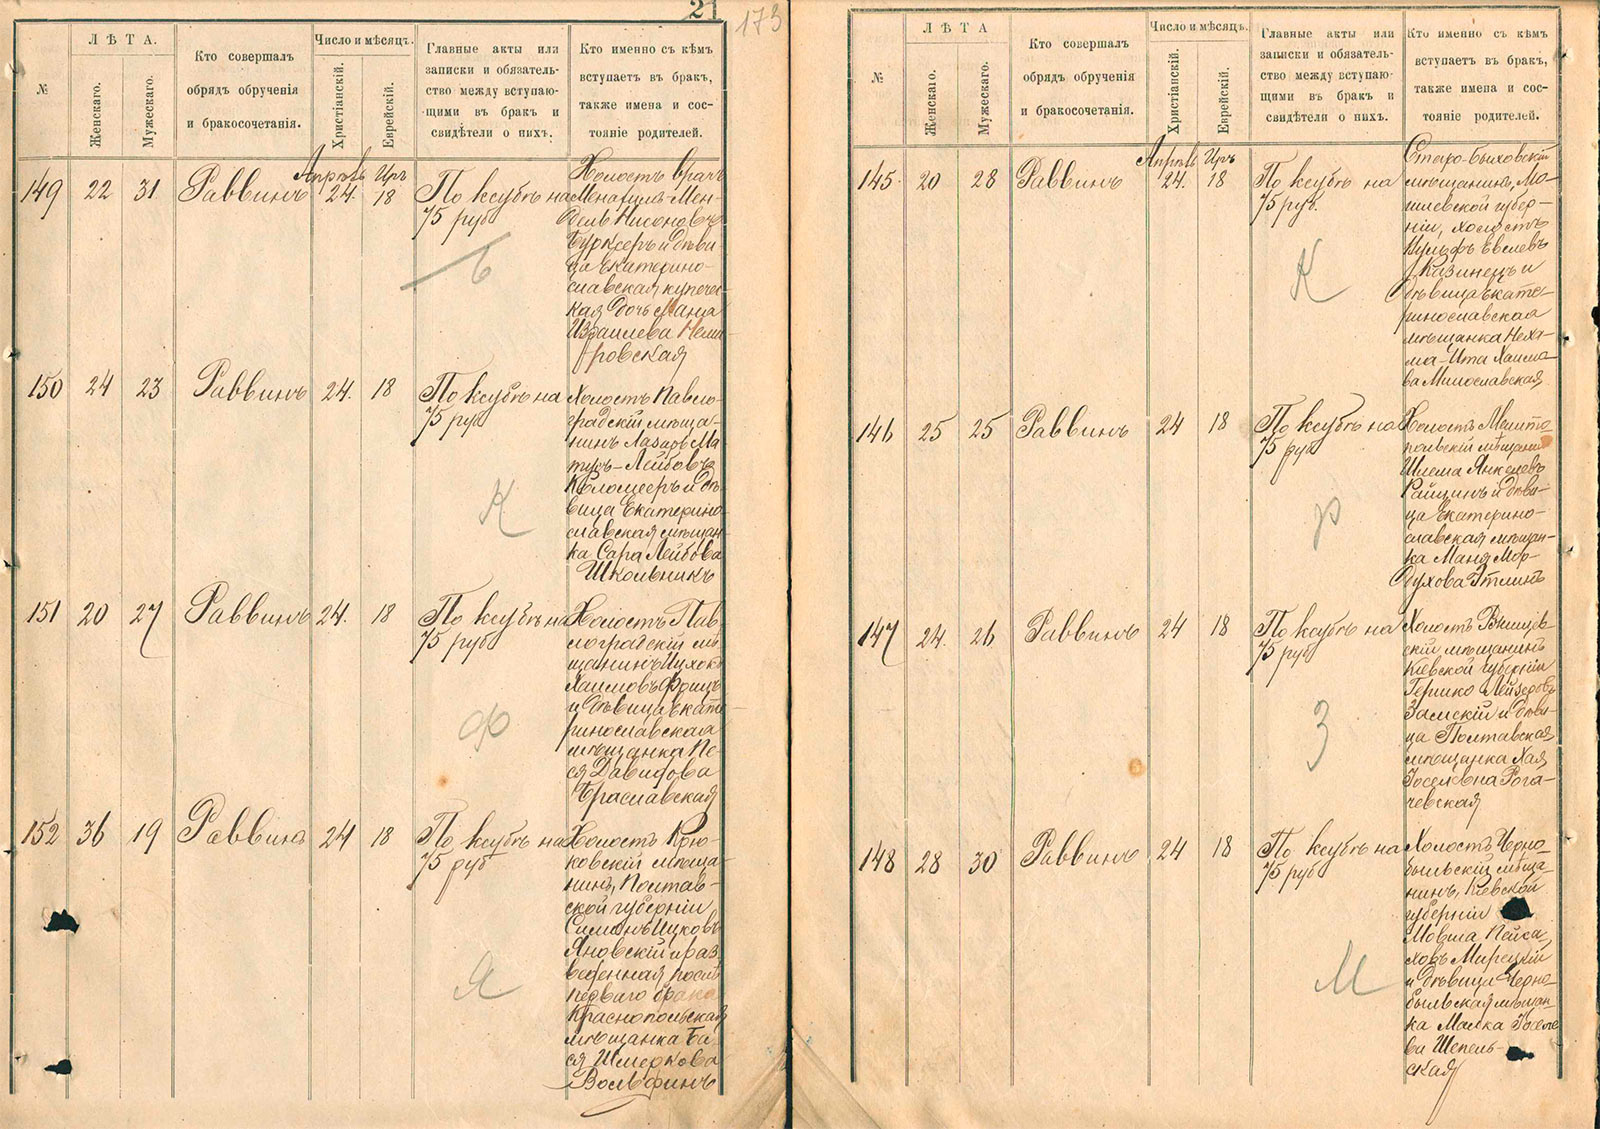 21
173
№
ЛѢТА.
Женскаго.
Мужескаго.
Кто совершалъ
обрядъ обрученія
и бракосочетанія.
Число и мѣсяцъ.
Христіанскій.
Еврейскій.
Главные акты или
записки и обязатель-
ство между вступаю-
щими въ бракъ и
свидѣтели о нихъ.
Кто именно съ кѣмъ
вступаетъ въ бракъ,
также имена и сос-
тояніе родителей.
149 22 31 Раввинъ Апрѣль 24. Иръ 18
По ксубѣ на
75 руб
Холостъ врачъ
Менахимъ-Мен-
дель Нисоновъ
Бурксеръ и дѣви-
ца Екатерино-
славская купечес-
кая дочь Маня
Израилева Неми-
ровская
Б
150 24 23 Раввинъ 24. 18
По ксубѣ на
75 руб
Холостъ Павло-
градскій мѣща-
нинъ Лазарь Ма-
тусъ-Лейбовъ
Коломеръ и дѣ-
вица Екатерино-
славская мѣщан-
ка Сара Лейбова
Школьникъ
К
151 20 27 Раввинъ 24. 18
По ксубѣ на
75 руб
Холостъ Пав-
лоградскій мѣ-
щанинъ Ицхокъ
Хаимовъ
и дѣвица Екате-
ринославская
мѣщанка Пе-
ся Давидова
Браславская
Ф
152 36 19 Раввинъ 24 18
По ксубѣ на
75 руб
Холостъ Крю-
ковскій мѣща-
нинъ, Полтав-
ской губерніи
Симонъ Ицковъ
Яновскій и раз-
веденная послѣ
перваго брака
Краснопольская
мѣщанка Ба-
ся Шмеркова
Вольфинъ
Я
№
ЛѢТА
Женскаго.
Мужескаго.
Кто совершалъ
обрядъ обрученія
и бракосочетанія.
Число и мѣсяцъ.
Христіанскій.
Еврейскій.
Главные акты или
записки и обязатель-
ство между вступаю-
щими въ бракъ и
свидѣтели о нихъ.
Кто именно съ кѣмъ
вступаетъ въ бракъ,
также имена и сос-
тояніе родителей.
145 20 28 Раввинъ Апрѣль 24. Иръ 18
По ксубѣ на
75 руб.
Старо-Быховскій
мѣщанинъ, Мо-
гилевской губер-
ніи, холостъ
Вульфъ Евелевъ
Казинецъ и
дѣвица Екате-
ринославская
мѣщанка Неха-
ма-Ита Хаимо-
ва Милославская
К
146 25 25 Раввинъ 24 18
По ксубѣ на
75 руб
Холостъ Мелито-
польскій мѣщанинъ
Шлема Янкелевъ
Райцинъ и дѣви-
ца Екатерино-
славская мѣщан-
ка Маня Мор-
духова Этлинъ
Р
147 24. 26 Раввинъ 24 18
По ксубѣ на
75 руб
Холостъ
скій мѣщанинъ
Кіевской губерніи
Гершко Лейзеровъ
Замскій и дѣви-
ца Полтавская
мѣщанка Хая
Іоселевна Рога-
чевская
З
148 28 30 Раввинъ 24 18
По ксубѣ на
75 руб
Холостъ Черно-
быльскій мѣща-
нинъ, Кіевской
губерніи
Мовша Пейса-
ховъ Мирецкій
и дѣвица Черно-
быльская мѣщан-
ка Малка Іоселе-
ва Шепель-
ская
М